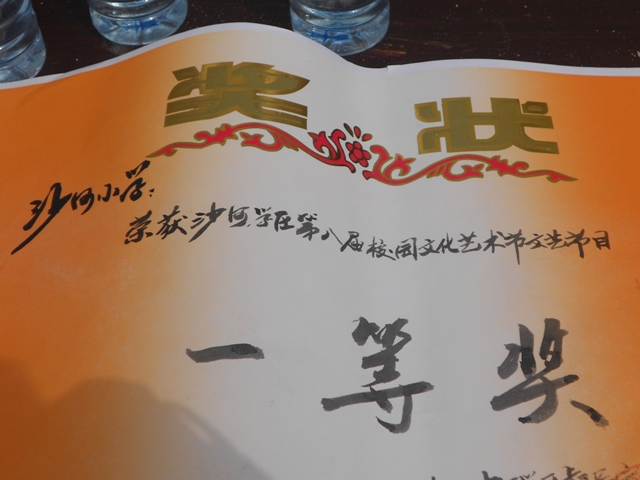 奖状
沙河小学:
荣获沙河学区第八届校园文化艺术节文艺节目
一等奖